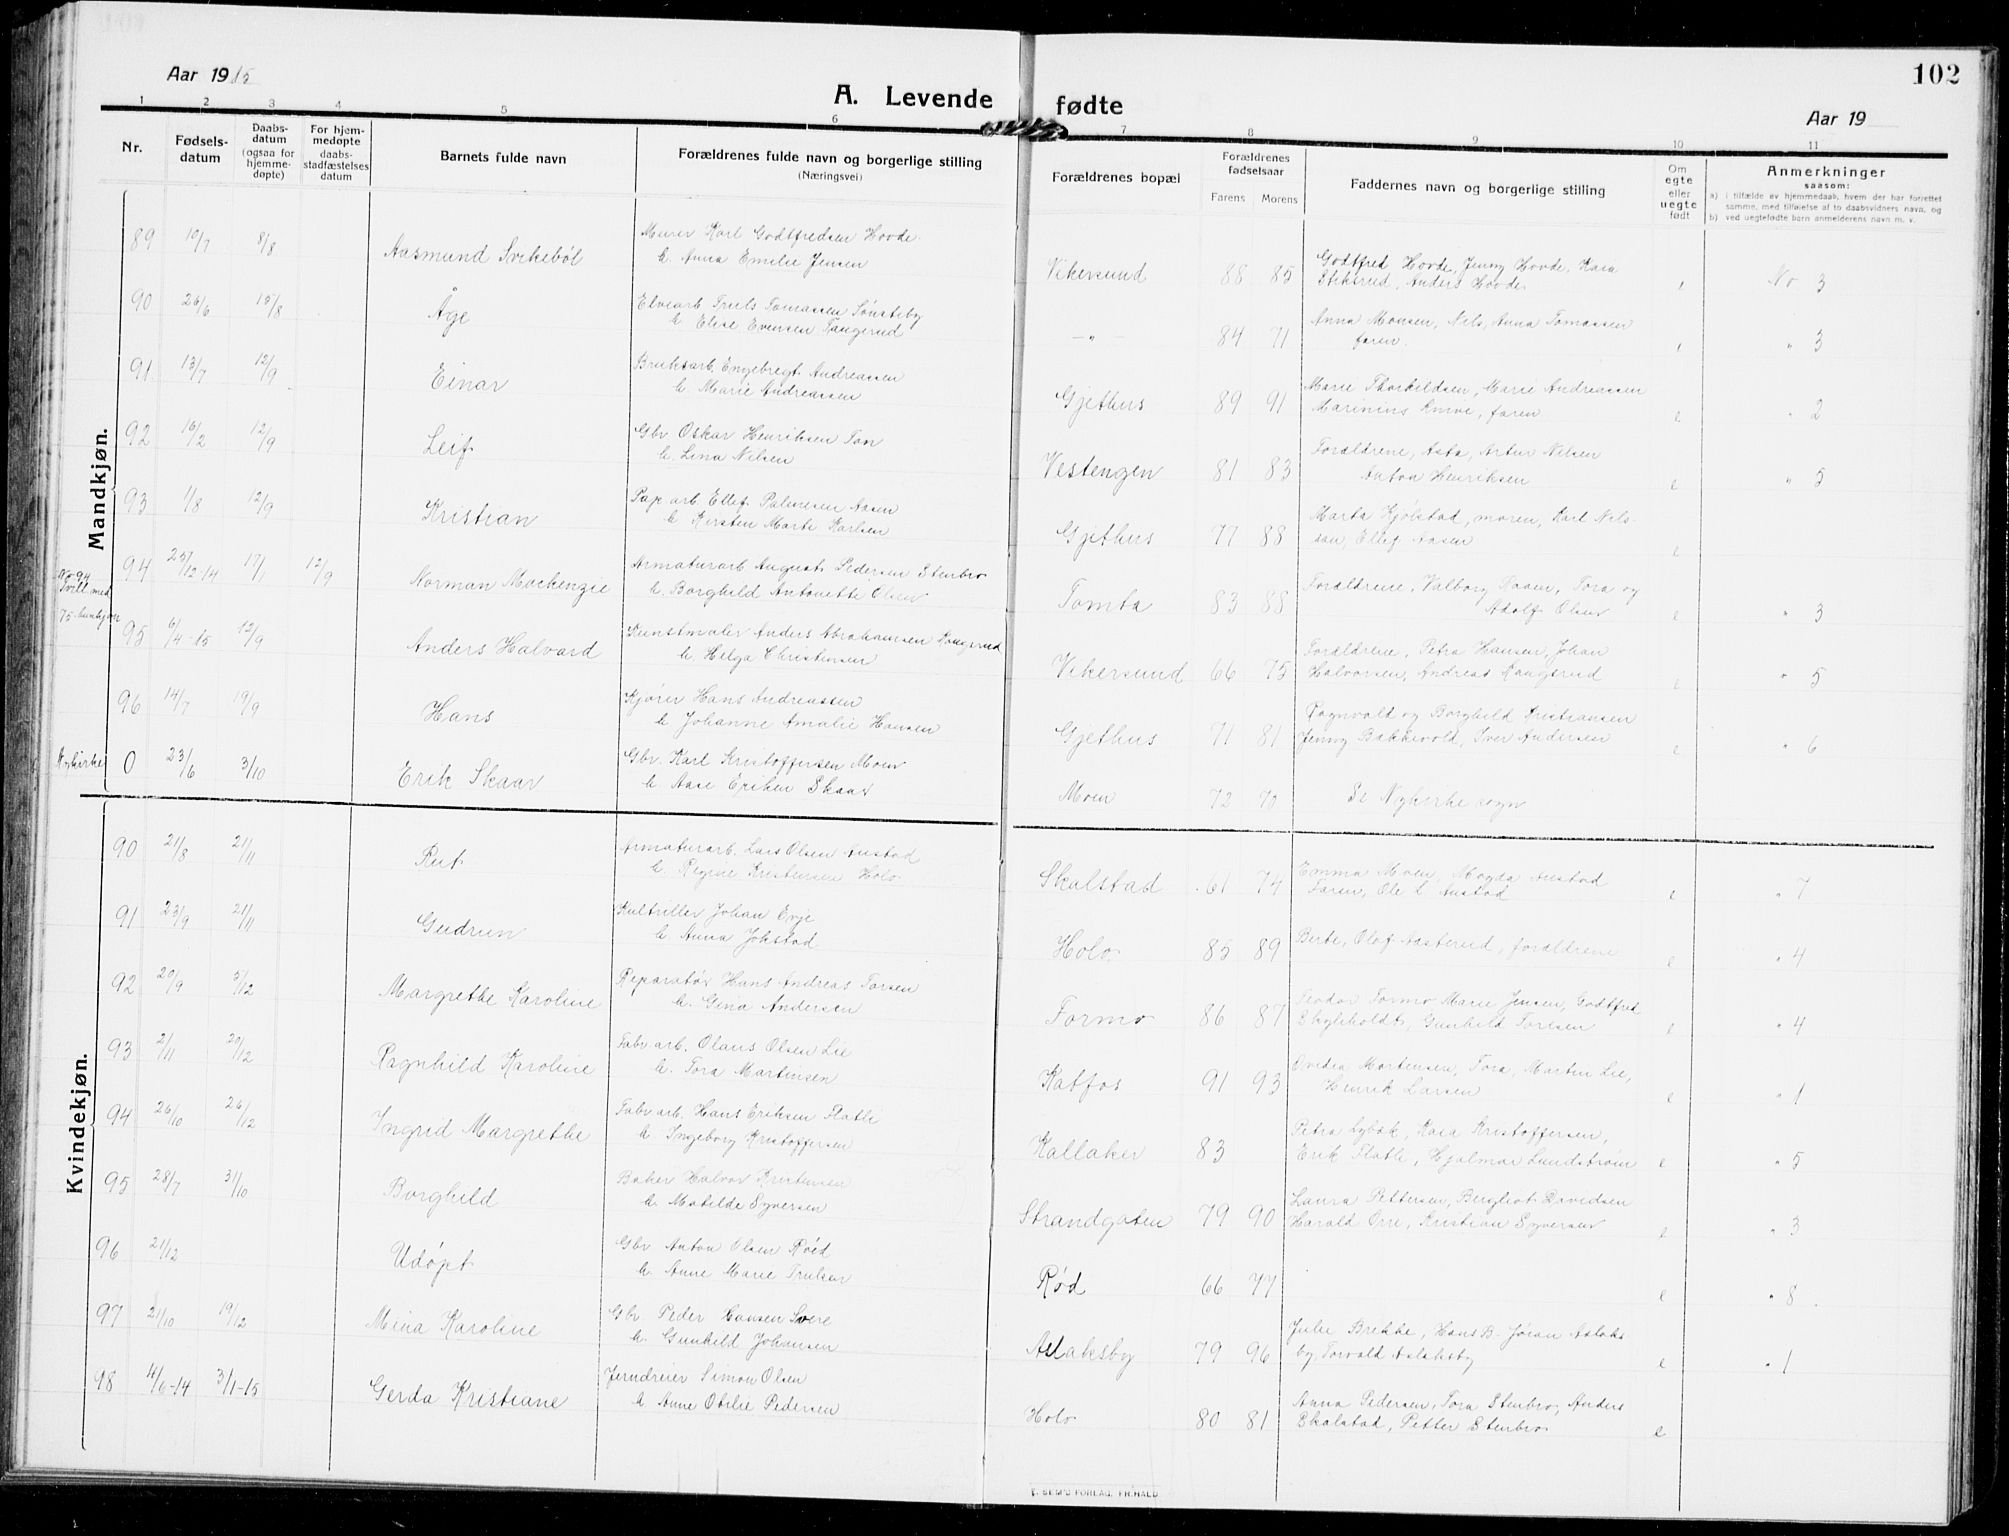 102
Aar 1915
A. Levende fødte
Aar 19
1 2 3 4 5 6 7 8 9 10 11
Nr.
Fødsels-
datum
Daabs-
datum
(ogsaa for
hjemme-
døpte)
For hjem-
medøpte
daabs-
stadfæstelses
datum
Barnets fulde navn
Forældrenes fulde navn og borgerlige stilling
(Næringsvei)
Forældrenes bopæl
Forældrenes
fødselsaar
Farens Morens
Faddernes navn og borgerlige stilling
Om
egte
eller
uegte
født
Anmerkninger
saasom:
a) i tilfælde av hjemmedaab, hvem der har forrettet
samme, med tilføielse af to daabsvidners navn, og
b) ved uegtefødte barn anmelderens navn m. v.
Mandkjøn.
89 19/7 8/8 Aasmund Svikebøl
Murer Karl Godtfredsen Hovde
h. Anna Emilie Jensen
Vikersund 88 85
Godtfred Hovde, Jenny Hovde, Kaia
Stiksrud, Anders Hovde
No 3
90 26/6 15/8 Åge
Elvearb Truls Tomassen Sønsteby
h Elise Evensen Tangerud
— " — 84 71
Anna Monsen, Nils, Anna Tomassen
faren.
" 3
91 13/7 12/9 Einar
Bruksarb. Engebregt Andreassen
h. Marie Andreassen
Gjethus 89 91
Marie Thorkildsen, Marie Andreassen
Marinius, faren
e " 2
92 16/2 12/9 Leif
Gbr Oskar Henriksen Ton
h. Lina Nilsen
Vestengen 81 83
Forældrene, Asta, Artur Nilsen
Anton Henriksen
e " 5
93 1/8 12/9 Kristian
Pap.arb. Ellef Palmesen Aasen
h Kirsten Marte Karlsen
Gjethus 77 88
Marta Kjølstad, moren, Karl Nils-
sen, Ellef Aasen
e
No 94
Tvill. med
75. kvinkjøn
94 25/12-14 17/1 12/9 Norman Mackenzie
Armaturarb August Pedersen Stenbro
h. Borghild Antonette Olsen
Tomta 83 88
Forældrene, Valborg Paaen, Tora og
Adolf Olsen
e " 3
95 6/4-15 12/9 Anders Halvard
Kunstmaler Anders Abrahamsen Kongsrud
h. Helga Christensen
Vikersund 66 75
Forældrene, Petra Hansen, Johan
Halvorsen, Andreas Kongsrud
e " 5
96 14/7 19/9 Hans
Kjører Hans Andreassen
h Johanne Amalie Hansen
Gjethus 71 81
Ragnvald og Borghild Kristiansen
Jenny Bakkevold, Iver Andersen
e " 6
Nykirke 0 23/6 3/10 Erik Skaar
Gbr. Karl Kristoffersen Moen
h. Aase Eriken Skaar
Moen 72 70
Se Nykirke sogn
Kvindekjøn.
90 21/8 21/11 Rut
Armaturarb. Lars Olsen Austad
h. Regine Kristensen Holo
Skalstad 61 74
Emma Moen, Magda Austad
Faren, Ole L Austad
e " 7
91 23/9 21/11 Gudrun
Kultriller Johan Evje
h Anna Jokstad
Holo 85 89
Berte, Olaf Aasterud, forældrene
e " 4
92 20/9 5/12 Margrethe Karoline
Reparatør Hans Andreas Torsen
h. Gina Andersen
Formo 86 87
Teodor Formo Marie Jensen, Godtfred
Gunhild Toresen
e " 4
93 2/11 20/12 Ragnhild Karoline
Fabr arb. Olaus Olsen Lie
h. Tora Martinsen
Katfos 91 93
Ovidia Mortensen, Tora, Martin Lie,
Henrik Larsen
e " 1
94 26/10 26/12 Ingrid Margrethe
Fabr arb. Hans Eriksen Flatli
h Ingeborg Kristoffersen
Kallaker 83
Petra Lybæk, Kaia Kristoffersen,
Erik Flatli, Hjalmar Lundstrøm
e " 5
95 28/7 31/10 Borghild
Baker Halvor Kristensen
h. Matilde Syversen
Strandgaten 79 90
Laura Pettersen, Bergliot Davidsen
Harald Orre, Kristian Syversen
e " 3
96 21/12 Udøpt
Gbr Anton Olsen Røed
h. Anne Marie Trulsen
Rød 66 77
e " 8
97 21/10 19/12 Mina Karoline
Gbr Peder Hansen Svere
h. Gunhild Johansen
Aslaksby 79 96
Julie Brekke, Hans B. Jøran Aslaks
by, Torvald Aslaksby
e " 1
98 4/6-14 3/1-15 Gerda Kristiane
Jerndreier Simon Olsen
h Anne Otilie Pedersen
Holo 80 81
Anna Pedersen, Tora Stenbro, Anders
Skalstad, Petter Stenbro
e
E. SEM'S FORLAG, FR.HALD